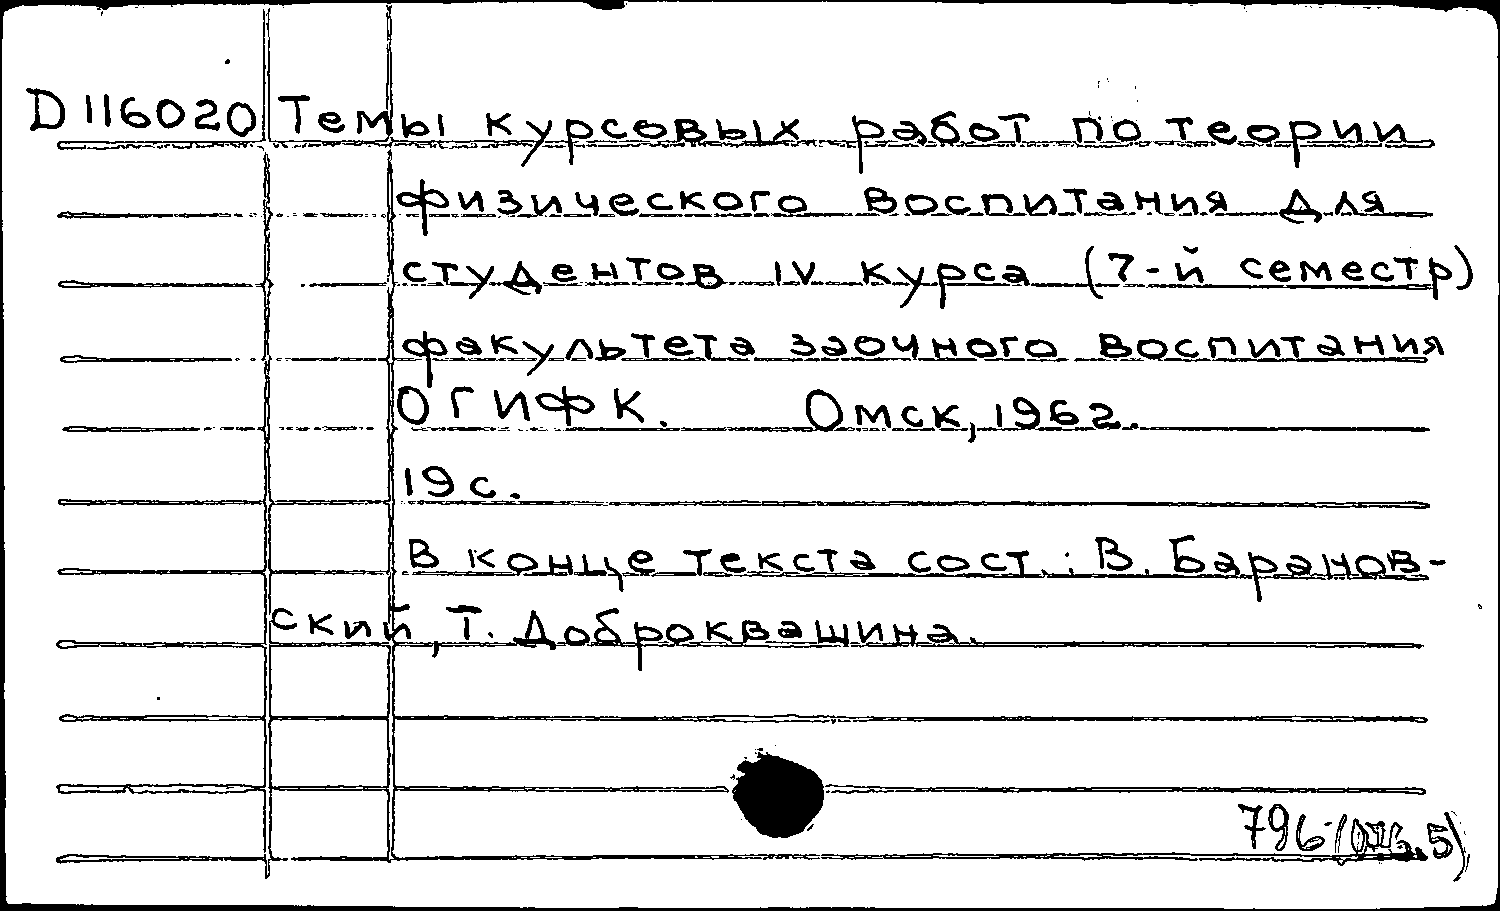 D116020 Темы курсовых работ по теории
физического воспитания для
студентов IV курса (7-й семестр)
факультета заочного воспитания
ОГИФК. Омск, 1962.
19 с.
В конце текста сост.: В. Баранов-
ский, Т. Доброквашина.
796